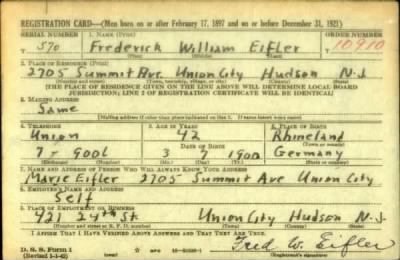 REGISTRATION CARD—(Men born on or after February 17, 1897 and on or before December 31, 1921)
SERIAL NUMBER 1. NAME (Print) ORDER NUMBER
570 Frederick William Eifler 10910
2. PLACE OF RESIDENCE (Print)
2705 Summit Ave Union City Hudson N.J.
(Number and street) (Town, township, village, or city) (County) (State)
[THE PLACE OF RESIDENCE GIVEN ON THE LINE ABOVE WILL DETERMINE LOCAL BOARD
JURISDICTION; LINE 2 OF REGISTRATION CERTIFICATE WILL BE IDENTICAL]
3. MAILING ADDRESS
Same
[Mailing address if other than place indicated on line 2. If same insert word same]
4. TELEPHONE 5. AGE IN YEARS 6. PLACE OF BIRTH
Union 42 Rhineland
DATE OF BIRTH
7-9006 3 7 1900 Germany
(Exchange) (Number) (Mo.) (Day) (Yr.) (State or country)
7. NAME AND ADDRESS OF PERSON WHO WILL ALWAYS KNOW YOUR ADDRESS
Marie Eifler 2705 Summit Ave Union City
8. EMPLOYER'S NAME AND ADDRESS
Self
9. PLACE OF EMPLOYMENT OR BUSINESS
421 24th St. Union City Hudson N.J.
(Number and street or R. F. D. number) (Town) (County) (State)
I AFFIRM THAT I HAVE VERIFIED ABOVE ANSWERS AND THAT THEY ARE TRUE.
D. S. S. Form 1
(Revised 1-1-42) (over)
Fred W. Eifler
(Registrant's signature)